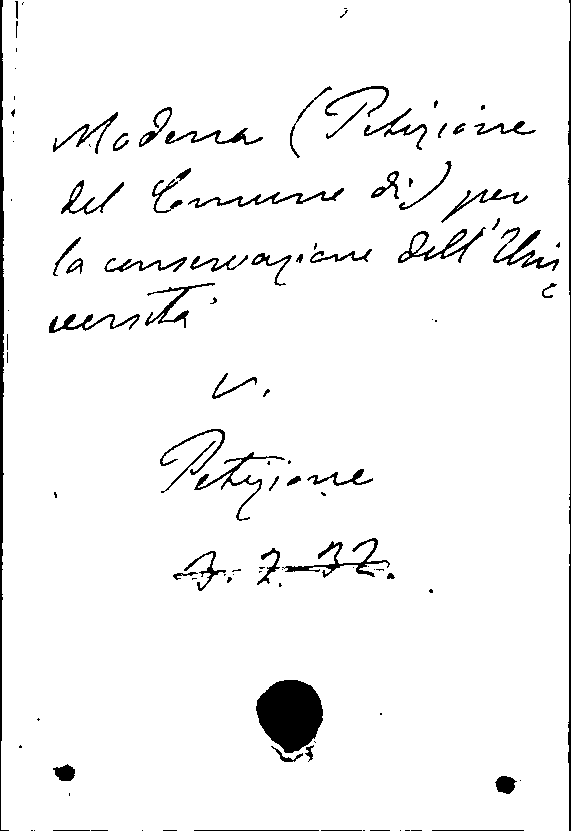 Modena (Petizione
del Comune di) per
la conservazione dell'Uni
versità
v.
Petizione
3. 7. 32.